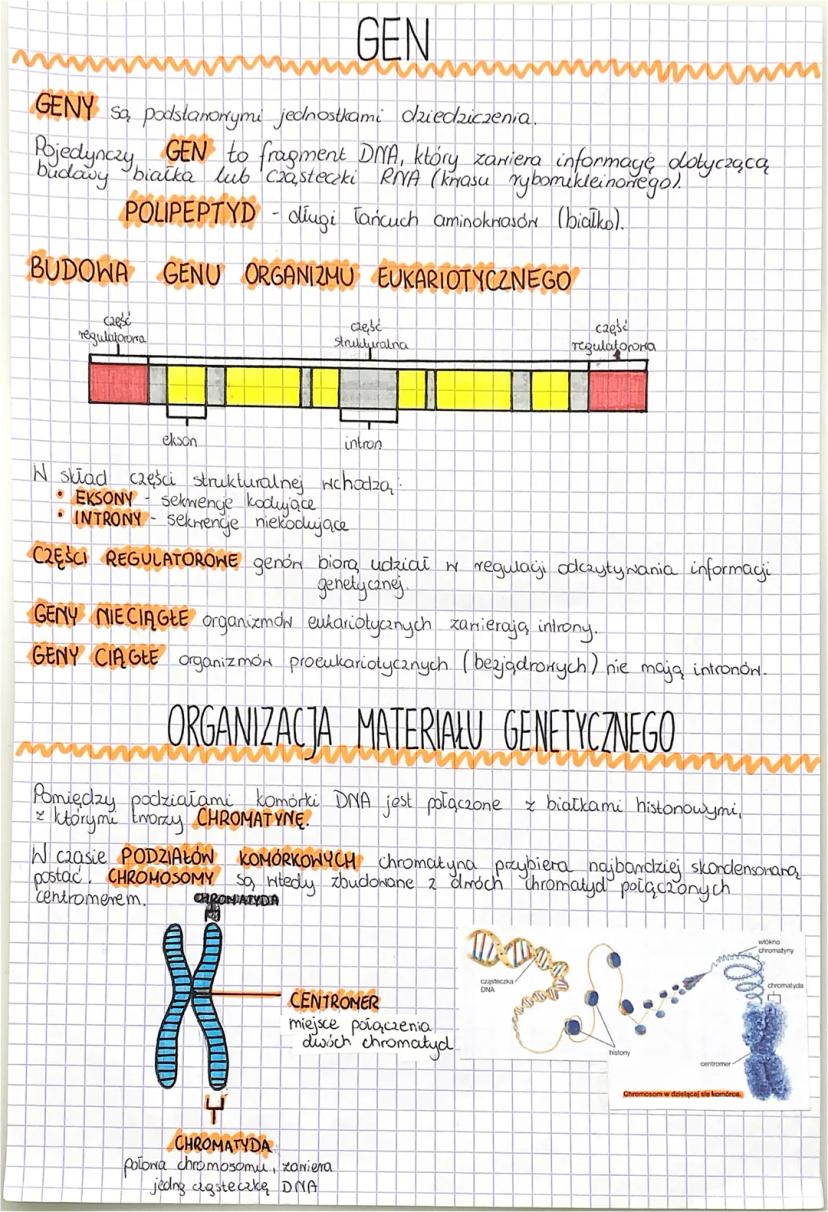 GEN
GENY są podstawowymi jednostkami dziedziczenia.
Pojedynczy GEN to fragment DNA, który zawiera informację dotyczącą
budowy białka lub cząsteczki RNA (kwasu rybonukleinowego).
POLIPEPTYD - długi łańcuch aminokwasów (białko).
BUDOWA GENU ORGANIZMU EUKARIOTYCZNEGO
część regulatorowa
część strukturalna
część regulatorowa
ekson
intron
W skład części strukturalnej wchodzą:
• EKSONY - sekwencje kodujące
• INTRONY - sekwencje niekodujące
CZĘŚCI REGULATOROWE genów biorą udział w regulacji odczytywania informacji
genetycznej.
GENY NIECIĄGŁE organizmów eukariotycznych zawierają introny.
GENY CIĄGŁE organizmów proeukariotycznych (bezjądrowych) nie mają intronów.
ORGANIZACJA MATERIAŁU GENETYCZNEGO
Pomiędzy podziałami komórki DNA jest połączone z białkami histonowymi,
z którymi tworzy CHROMATYNĘ.
W czasie PODZIAŁÓW KOMÓRKOWYCH chromatyna przybiera najbardziej skondensowaną
postać. CHROMOSOMY są wtedy zbudowane z dwóch chromatyd połączonych
centromerem.
CHROMATYDA
CENTROMER
miejsce połączenia
dwóch chromatyd
CHROMATYDA
połowa chromosomu, zawiera
jedną cząsteczkę DNA
cząsteczka
DNA
histony
włókno
chromatyny
chromatyda
centromer
Chromosom w dzielącej się komórce.